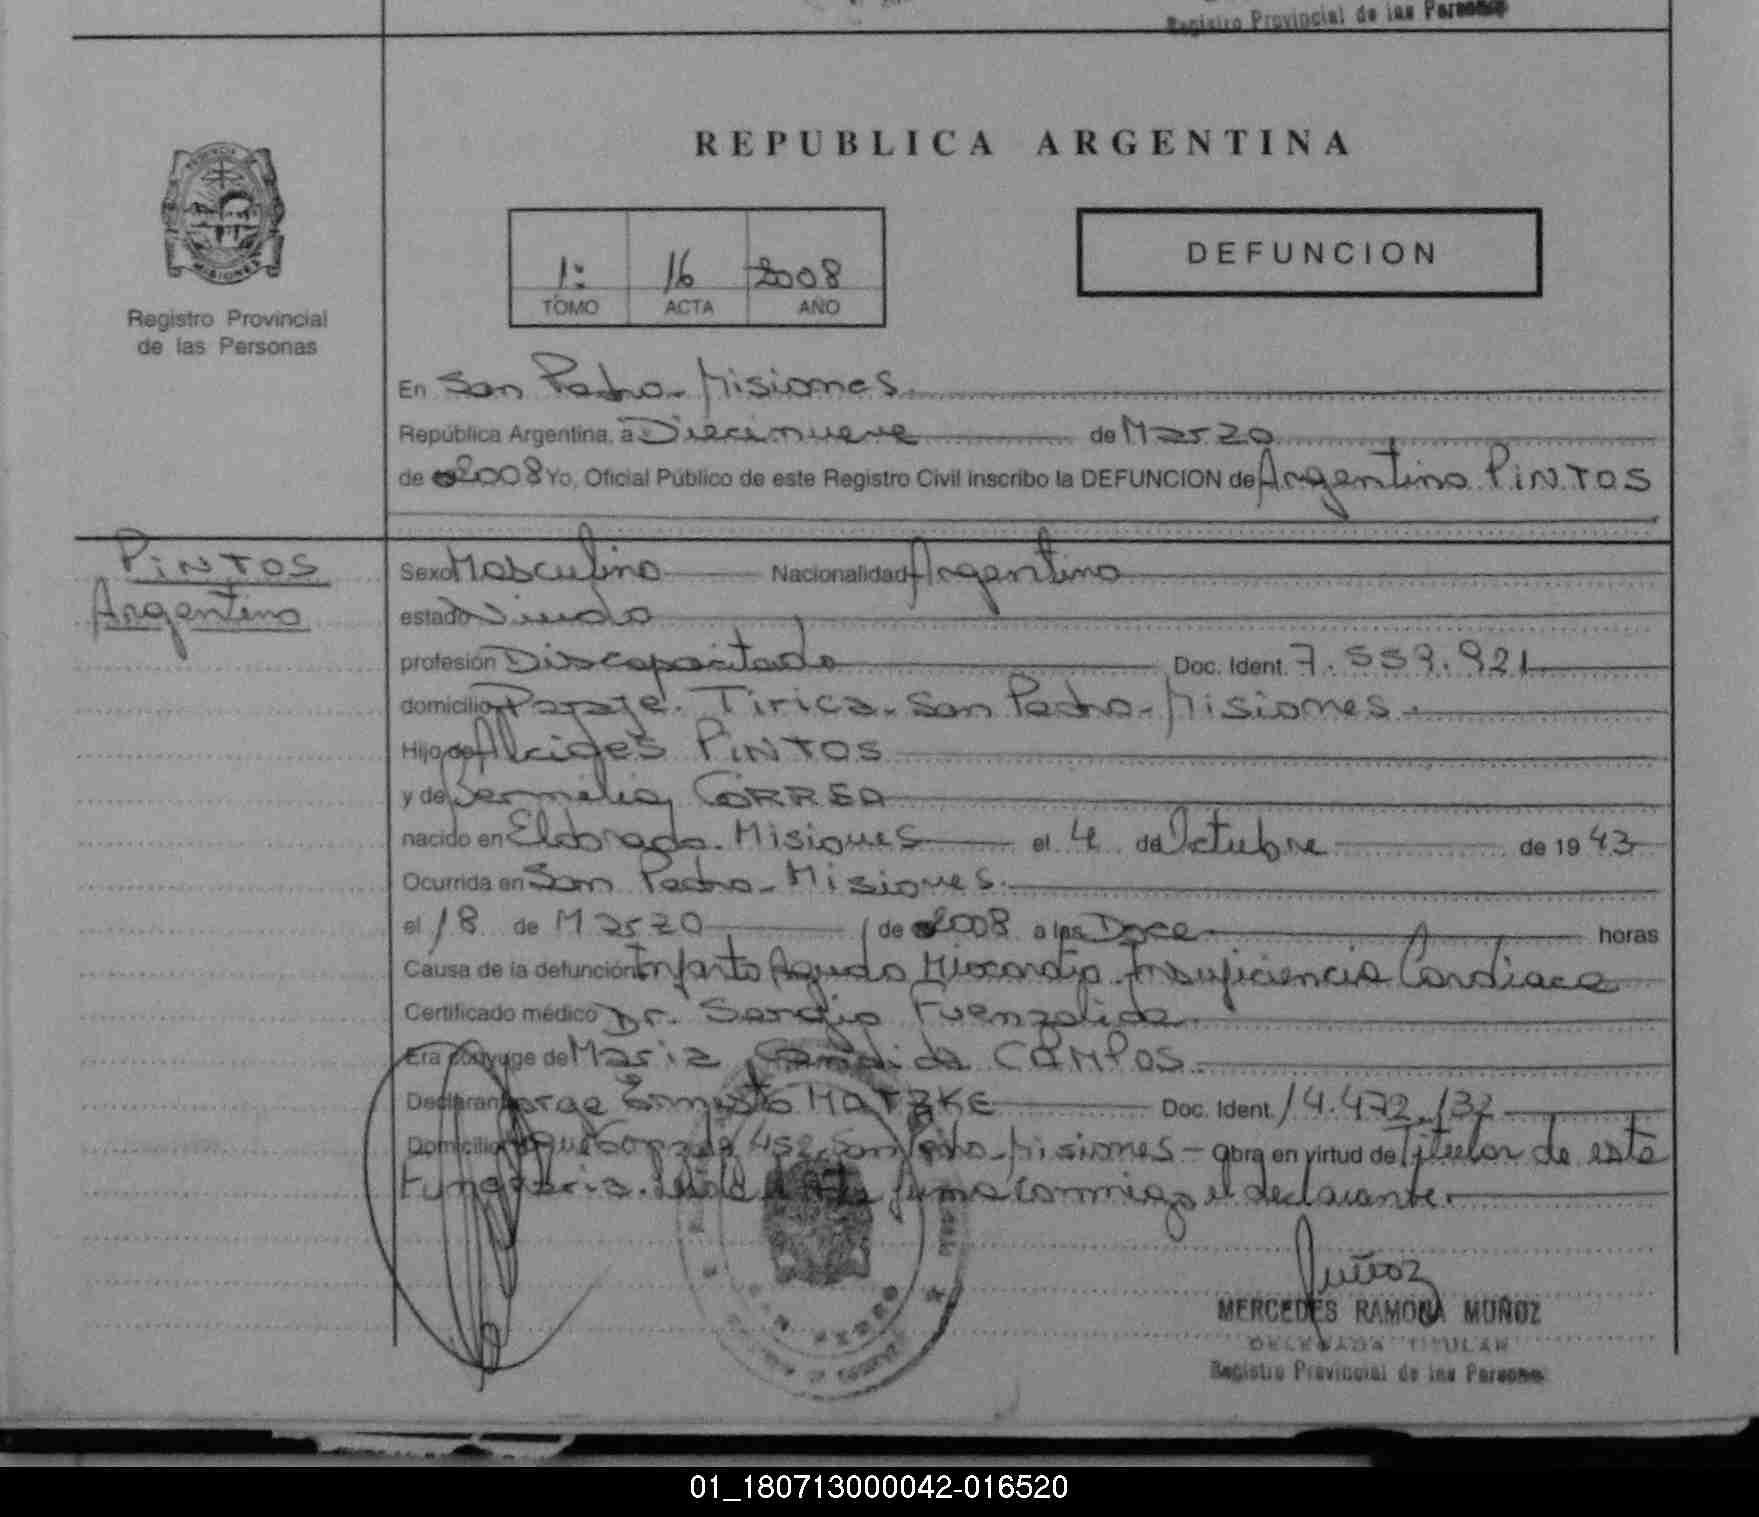 Registro Provincial de las Personas
REPUBLICA ARGENTINA
PROVINCIA
MISIONES
1: 16 2008
TOMO ACTA AÑO
DEFUNCION
Registro Provincial
de las Personas
En San Pedro - Misiones.
República Argentina, a Diecinueve de Marzo
de 2008 Yo, Oficial Público de este Registro Civil inscribo la DEFUNCION de Argentino PINTOS
PINTOS
Argentino
Sexo Masculino Nacionalidad Argentino
estado Viudo
profesión Discapacitado Doc. Ident. 7.559.921
domicilio Paraje. Tirica - San Pedro - Misiones.
Hijo de Alcides PINTOS
y de CORREA
nacido en Eldorado - Misiones el 4 de Octubre de 1943
Ocurrida en San Pedro - Misiones.
el 18 de Marzo de 2008 a las Doce horas
Causa de la defunción Infarto Agudo Miocardio - Insuficiencia Cardiaca
Certificado médico Dr. Sergio Fuenzalida
Era cónyuge de Maria Candida CAMPOS
Declarante Jorge Ernesto MATZKE Doc. Ident. 14.472.132
Domicilio 452 - San Pedro - Misiones - obra en virtud de Titular de este
Funeraria. firma conmigo el declarante.
Muñoz
MERCEDES RAMONA MUÑOZ
DELEGADA TITULAR
Registro Provincial de las Personas
SAN PEDRO
01_180713000042-016520